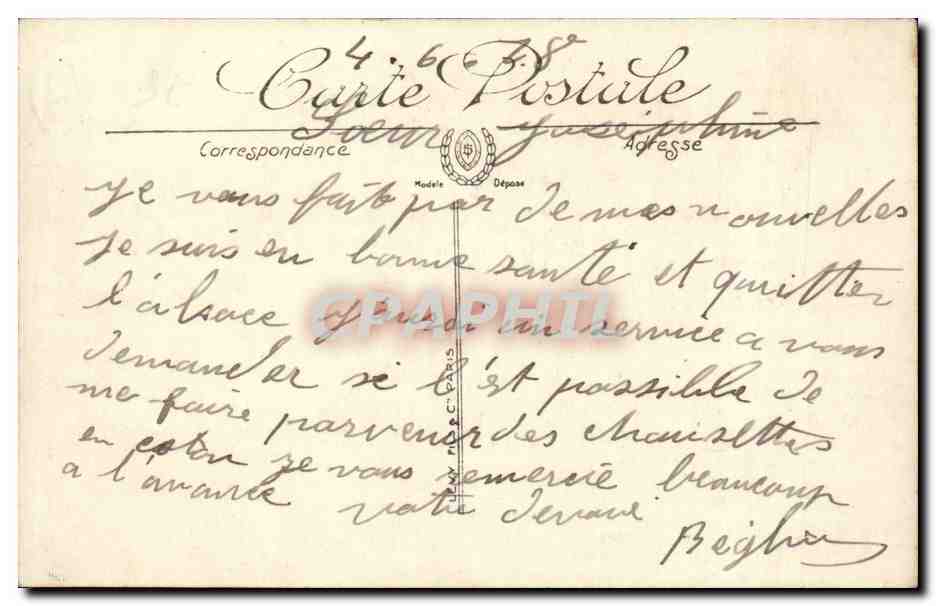 4.6.18
Carte Postale
Soeur Joséphine
Correspondance
Adresse
Modèle Déposé
Je vous fait par de mes nouvelles
Je suis en bonne santé et quitter
l'alsace j'aurai un service a vous
demander si s'est possible de
me faire parvenir des chausettes
en coton je vous remercie beaucoup
a l'avance
votre dévoué
LEVY FILS & Cie PARIS
CPAPHIL